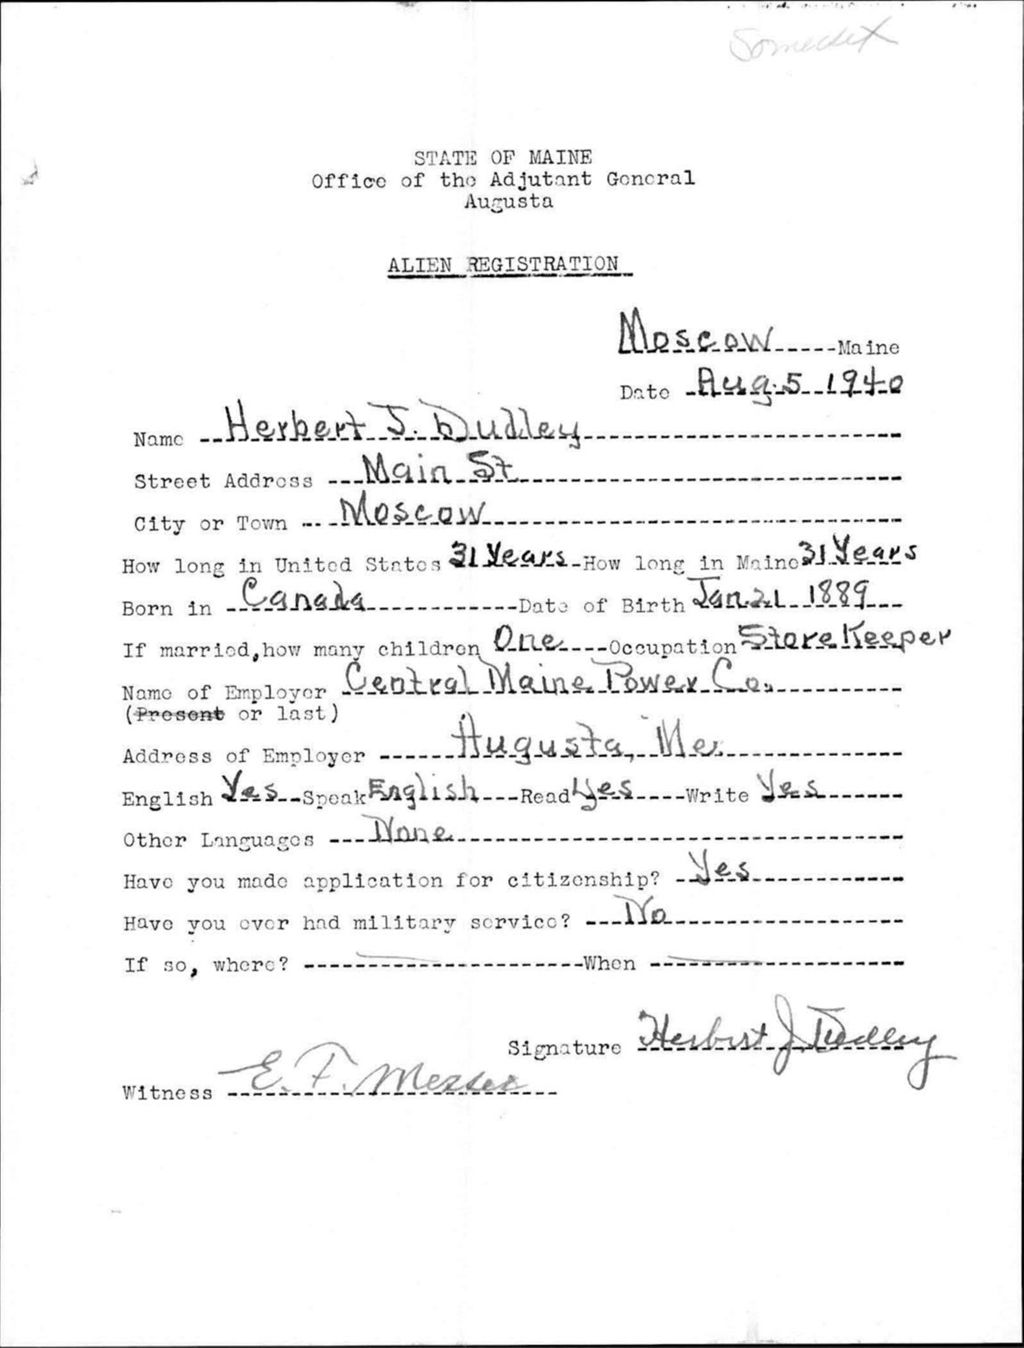 Somerset
STATE OF MAINE
Office of the Adjutant General
Augusta
ALIEN REGISTRATION
Moscow Maine
Date Aug. 5 1940
Name Herbert J. Dudley
Street Address Main St
City or Town Moscow
How long in United States 31 Years How long in Maine 31 Years
Born in Canada Date of Birth Jan 21 1889
If married, how many children One Occupation Store Keeper
Name of Employer Central Maine Power Co.
(Present or last)
Address of Employer Augusta, Me.
English Yes Speak English Read Yes Write Yes
Other Languages None
Have you made application for citizenship? Yes
Have you ever had military service? No
If so, where? When
Signature Herbert J Dudley
Witness E. F. Messer